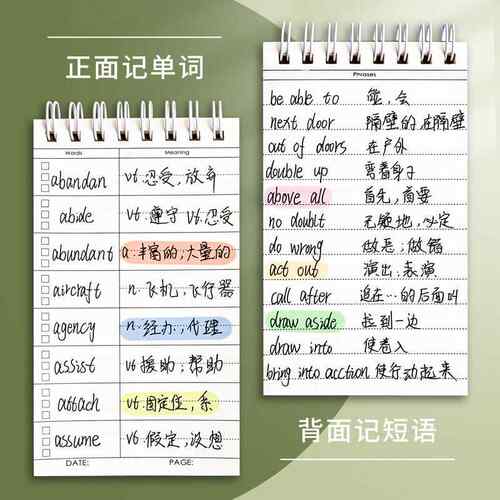 正面记单词
Words Meaning
abandan vt.忍受,放弃
abide vt.遵守 vt.忍受
abundant a.丰富的,大量的
aircraft n.飞机,飞行器
agency n.经办,代理
assist vt援助,帮助
attach vt.固定住,系
assume vt.假定,设想
DATE: PAGE:
Phrases
be able to 能,会
next door 隔壁的,在隔壁
out of doors 在户外
double up 弯着身子
above all 首先,首要
no doubt 无疑地,必定
do wrong 做恶;做错
act out 演出,表演
call after 追在…的后面叫
draw aside 拉到一边
draw into 使卷入
bring into acction 使行动起来
背面记短语